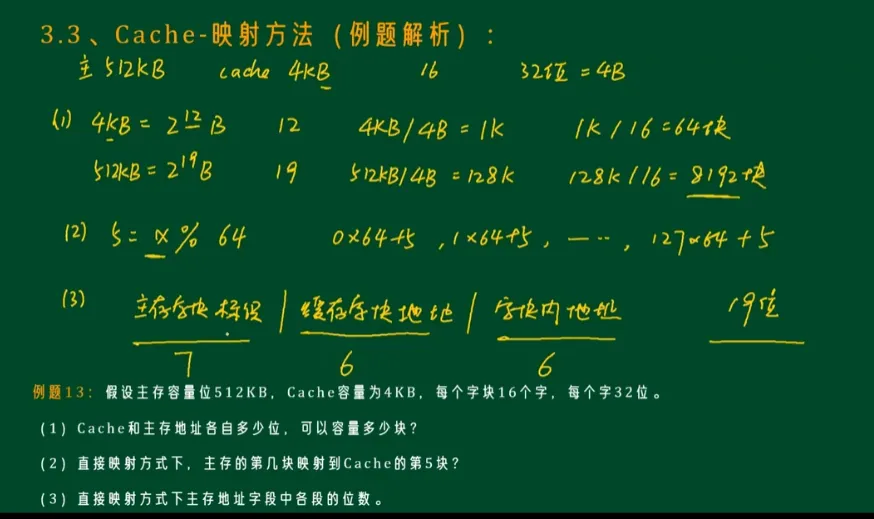 3.3、Cache-映射方法(例题解析):
主 512KB cache 4KB 16 32位 = 4B
(1) 4KB = 2^12 B 12 4KB/4B = 1K 1K/16 = 64块
512KB = 2^19 B 19 512KB/4B = 128K 128K/16 = 8192块
(2) 5 = x % 64 0×64+5 , 1×64+5 , —…, 127×64+5
(3) 主存字块标识 | 缓存字块地址 | 字块内地址 19位
7 6 6
例题13: 假设主存容量位512KB,Cache容量为4KB,每个字块16个字,每个字32位。
(1)Cache和主存地址各自多少位,可以容量多少块?
(2)直接映射方式下,主存的第几块映射到Cache的第5块?
(3)直接映射方式下主存地址字段中各段的位数。